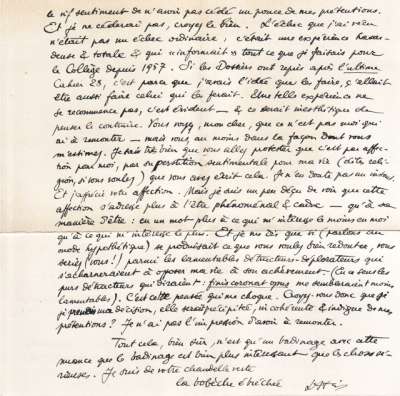 le vif sentiment de n'avoir pas cédé un pouce de mes prétentions.
Et je ne céderai pas, croyez-le bien. L'échec que j'ai vécu
n'était pas un échec ordinaire, c'était une expérience hasar-
deuse & totale & qui informait tout ce que je faisais pour
le Collège depuis 1957. Si les Dossiers ont repris après l'ultime
Cahier 28, c'est parce que j'avais l'idée que les faire, ç'allait
être aussi faire celui qui les ferait. Une telle expérience ne
se recommence pas, c'est évident & ce serait inesthétique de
penser le contraire. Vous voyez, mon cher, que ce n'est pas moi qui
ai à remonter — mais vous au moins dans la façon dont vous
m'estimez. Je sais très bien que vous allez protester que c'est par affec-
tion pour moi, par superstition sentimentale pour ma vie (dite reli-
gion, si vous voulez) que vous avez écrit cela. Je n'en doute pas un instant.
Et j'apprécie votre affection. Mais je suis un peu déçu de voir que cette
affection s'adresse plus à l'être phénoménal & qu'à sa
manière d'être : en un mot plus à ce qui m'intéresse le moins en moi
qu'à ce qui m'intéresse le plus. Et je me dis que si (parlons au
mode hypothétique) se produisait ce que vous voulez bien redouter, vous
seriez (vous !) parmi les lamentables détracteurs-déplorateurs qui
s'acharneraient à opposer ma vie à son achèvement. (Ceux seuls les
purs détracteurs qui diraient : finis coronat opus me sembleraient moins
lamentables). C'est cette pensée qui me choque. Croyez-vous donc que si
je prenais ma décision, elle serait précipitée, incohérente & indigne de mes
prétentions ? Je n'ai pas l'impression d'avoir à remonter.
Tout cela, bien sûr, n'est qu'un badinage avec cette
nuance que le badinage est bien plus intéressant que les choses sé-
rieuses. Je suis de votre chandelle verte
la bobèche ébréchée